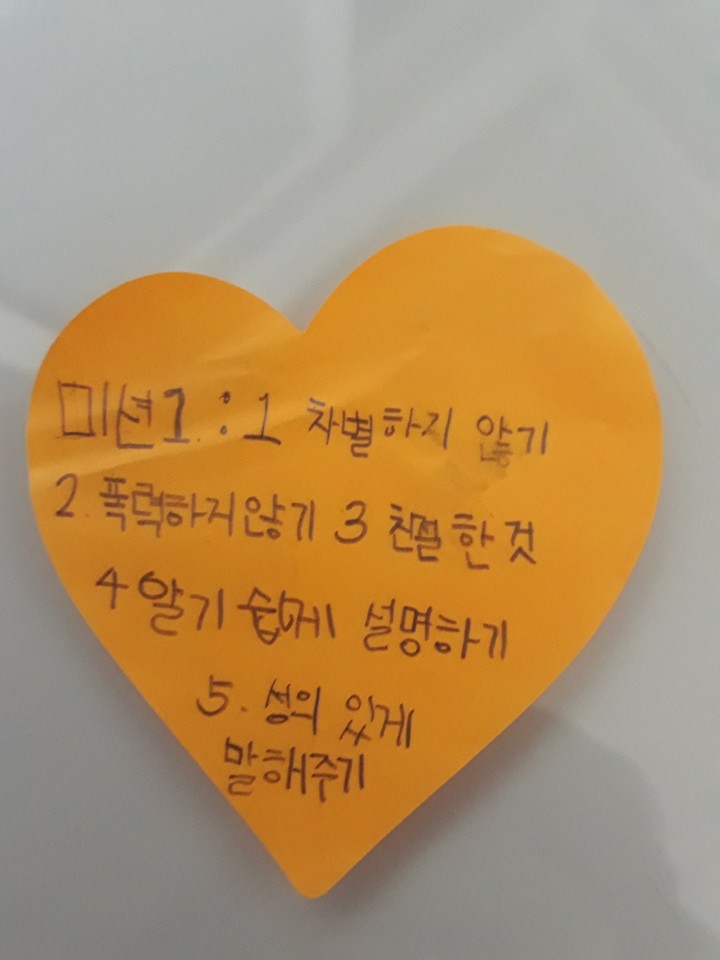 미션1. : 1 차별하지 않기
2. 폭력하지않기 3 친절한 것
4 알기 쉽게 설명하기
5. 성의 있게
말해주기